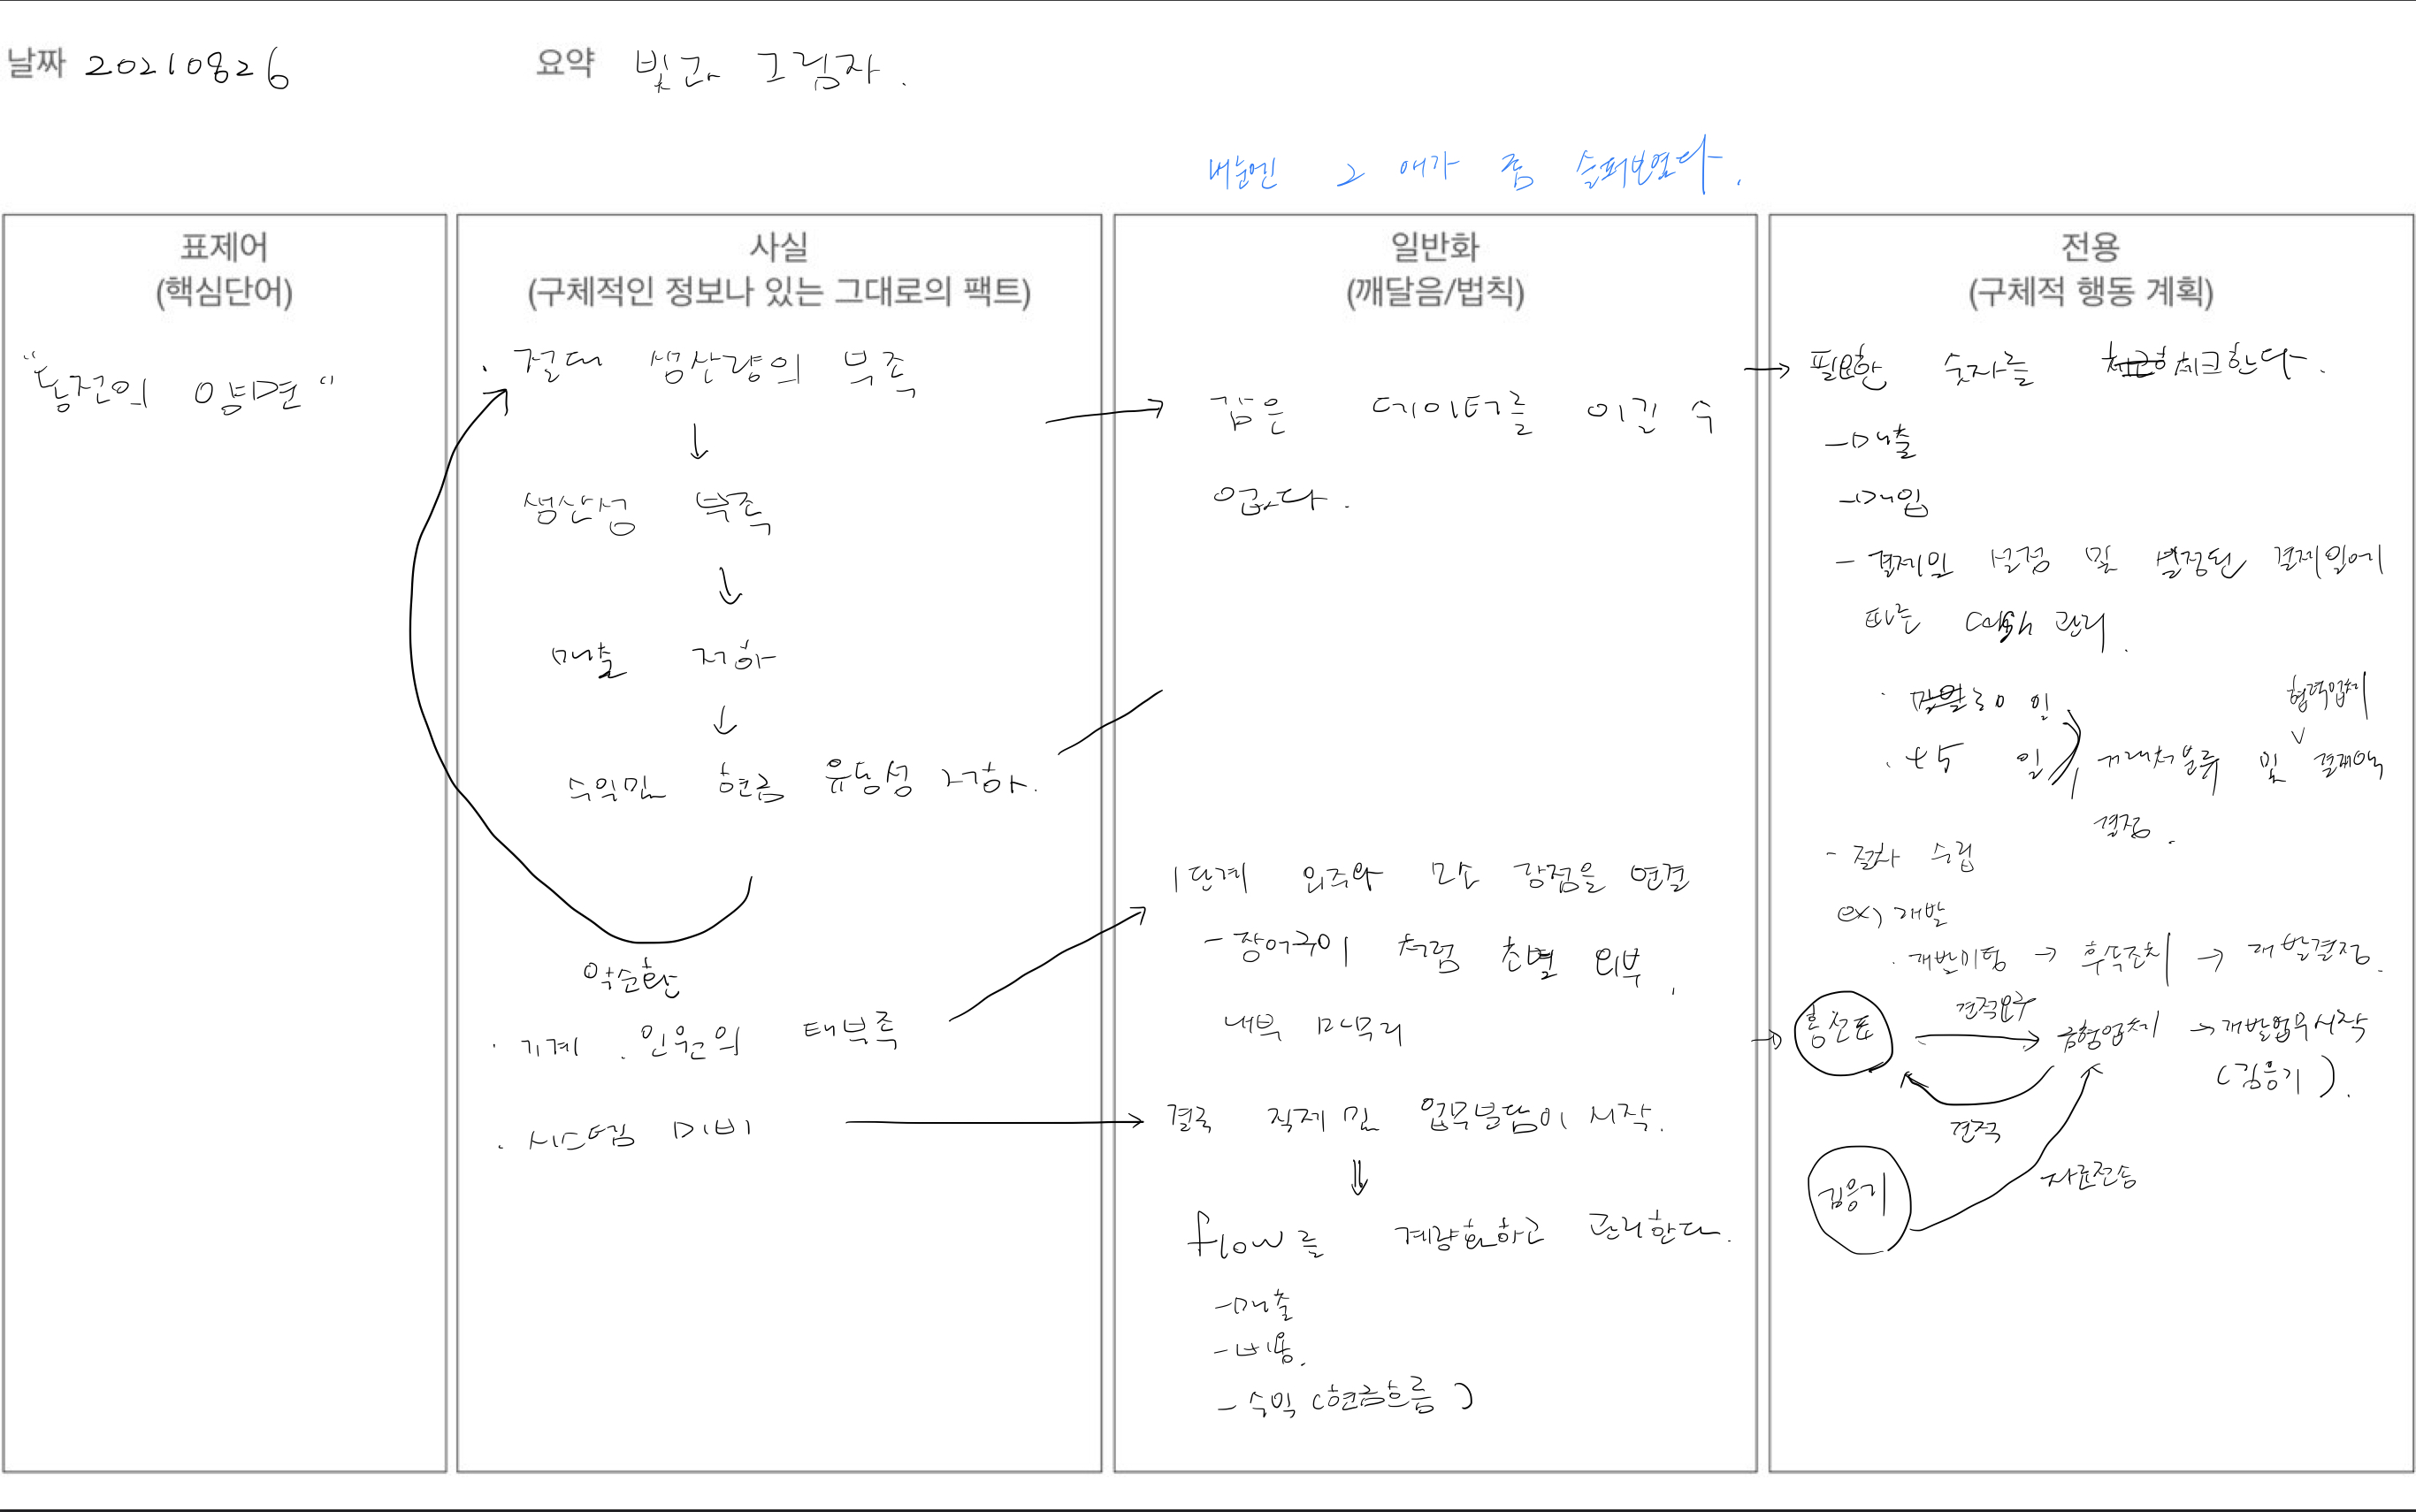 날짜 20210826
요약 빛과 그림자.
내눈엔 그 애가 좀 슬퍼보였다.
표제어
(핵심단어)
"동전의 양면"
사실
(구체적인 정보나 있는 그대로의 팩트)
· 절대 생산량의 부족
↓
생산성 부족
↓
매출 저하
↓
수익및 현금 유동성 저하.
악순환
· 기계. 인원의 태부족
· 시스템 미비
일반화
(깨달음/법칙)
감은 데이터를 이길 수
없다.
1단계 외주와 강점을 연결
- 장어구이 처럼 초벌 외부,
내부 마무리
결국 직제 및 업무분담이 시작.
⇓
flow를 계량화하고 관리한다.
- 매출
- 비용.
- 수익 (현금흐름)
전용
(구체적 행동 계획)
→ 필요한 숫자를 체크한다.
- 매출
- 매입
- 결제일 설정 및 설정된 결제일에
따른 cash 관리.
· 30 일
· 45 일
협력업체
거래처분류 및 결제액
결정.
- 절차 수립
ex) 개발
· 개발미팅 → 후속조치 → 개발결정.
견적요구
→ 금형업체 → 개발업무시작
(김응기).
견적
김응기
자료전송